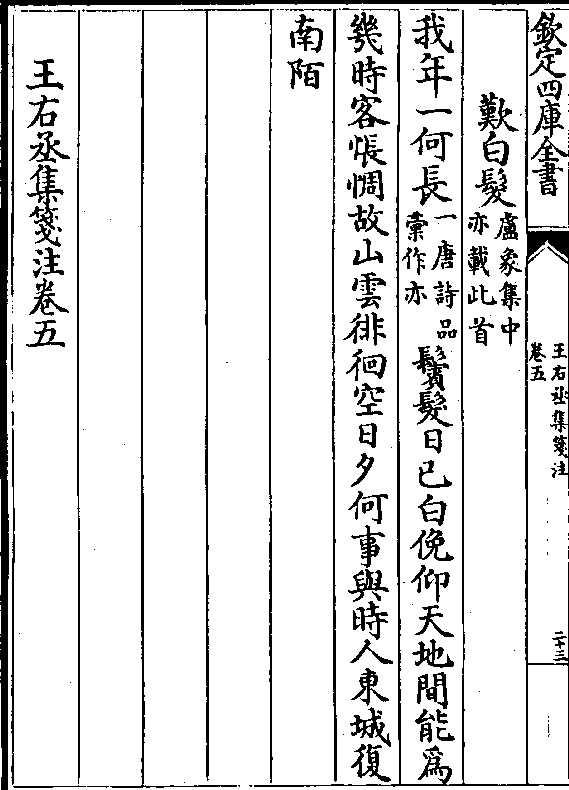 欽定四庫全書
王右丞集箋注
卷五
二十三
歎白髮盧象集中亦載此首
我年一何長一唐詩品彙作亦鬢髮日已白俛仰天地間能爲
幾時客悵惆故山雲徘徊空日夕何事與時人東城復
南陌
王右丞集箋注卷五